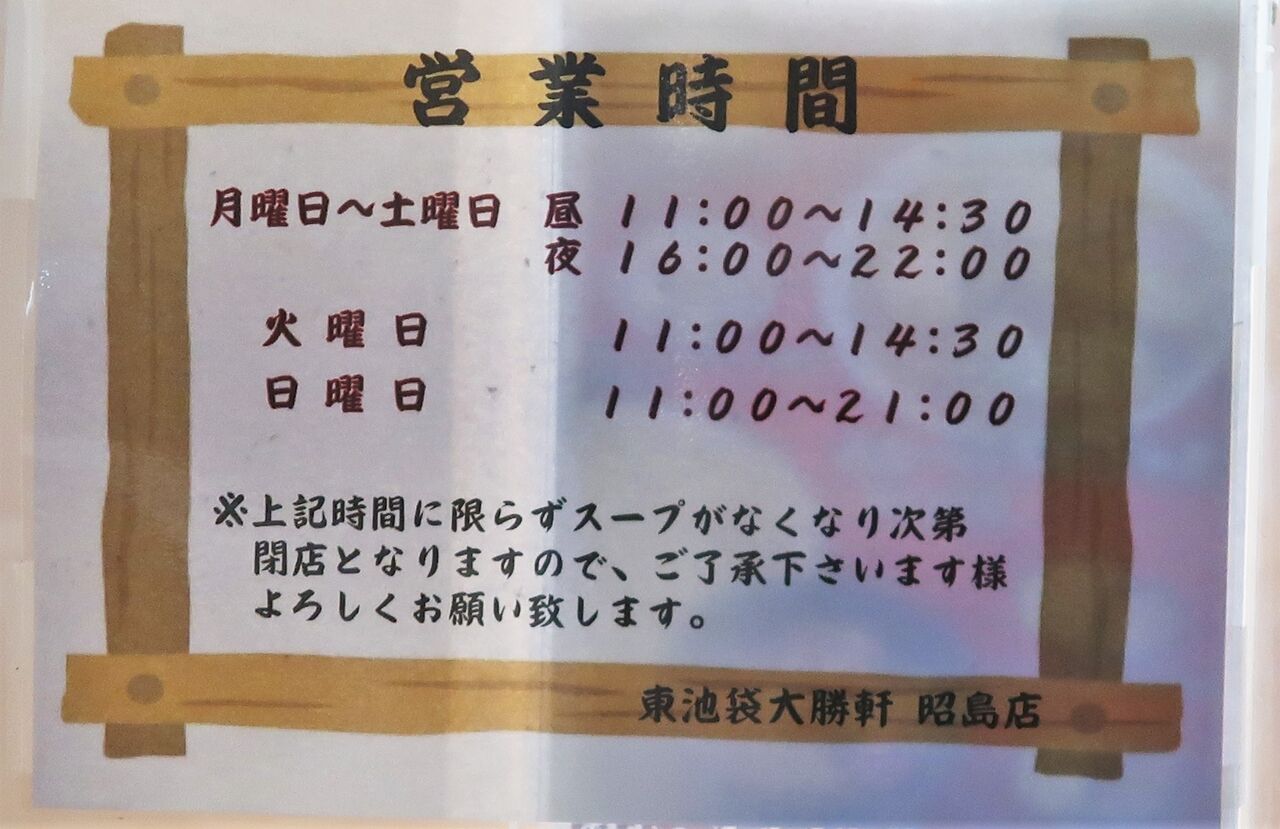 営業時間
月曜日～土曜日 昼 11:00～14:30
夜 16:00～22:00
火曜日 11:00～14:30
日曜日 11:00～21:00
※上記時間に限らずスープがなくなり次第
閉店となりますので、ご了承下さいます様
よろしくお願い致します。
東池袋大勝軒 昭島店